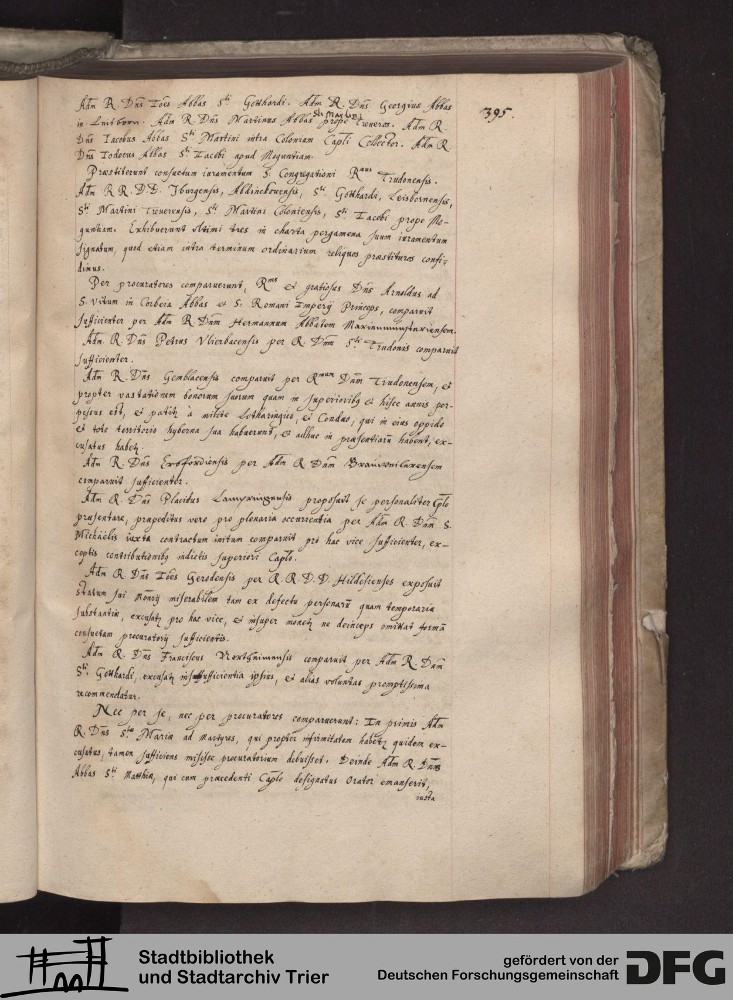 Adm R. Dns Joes Abbas Sti Gotthardi. Adm R. Dns Georgius Abbas
395.
in Luisborn. Adm R. Dns Martinus Abbas Sti Martini prope Treveros. Adm R.
Dns Jacobus Abbas Sti Martini intra Coloniam Capli Collector. Adm R.
Dns Jodocus Abbas Sti Jacobi apud Moguntiam.
Præstiterunt consuetum iuramentum S. Congregationi Rmus Trudonensis.
Adm RR. DD. Iburgensis, Abdinckovensis, Sti Gotthardi, Leisbornensis,
Sti Martini Treverensis, Sti Martini Coloniensis, Sti Jacobi prope Mo-
guntiam. Exhibuerunt ultimi tres in charta pergamena suum iuramentum
signatum, quod etiam intra terminum ordinarium reliquos præstituros confi-
dimus.
Per procuratores comparuerunt, Rmus et gratiosus Dns Arnoldus ad
S. Vitum in Corbeia Abbas et S. Romani Imperij Princeps, comparuit
sufficienter per Adm R. Dnm Hermannum Abbatem Marienmunsteriensem.
Adm. R. Dns Petrus Vlierbacensis per R. Dnm Sti Trudonis comparuit
sufficienter.
Adm R. Dns Gemblacensis comparuit per Rmum Dnm Trudonensem, et
propter vastationem bonorum suorum quam in superioribus et hisce annis per-
pessus est, et patitur à milite Lotharingico, et Condæo, qui in eius oppido
et toto territorio hyberna sua habuerunt, et adhuc in præsentiarum habent, ex-
cusatus habetur.
Adm R. Dns Erffordiensis per Adm R Dnm Brauweilerensem
comparuit sufficienter.
Adm R. Dns Placidus proposuit se personaliter Caplo
præsentare, præpeditus vero pro plenaria occurrentia per Adm R. Dnm S.
Michaëlis iuxta contractum initum comparuit pro hac vice sufficienter, ex-
ceptis contributionibus indictis superiori Caplo.
Adm R. Dns Joes Gerodensis per R.R.D.D. Hildesienses exposuit
statum sui Monrij miserabilem tam ex defectu personarum quam temporaria
substantia, excusatur pro hac vice, et insuper monetur ne deinceps omittat formam
consuetam procuratorij sufficientis.
Adm R. Dns Franciscus Northeimensis comparuit per Adm R. Dnm
Sti Gotthardi, excusatur insufficientia ipsius, et alias voluntas promptissima
recommendatur.
Nec per se, nec per procuratores comparuerunt: In primis Adm
R. Dns Stæ Mariæ ad Martyres, qui propter infirmitatem habetur quidem ex-
cusatus, tamen sufficiens misisse procuratorium debuisset. Deinde Adm R. Dnus
Abbas Sti Matthiæ, qui cum præcedenti Caplo designatus Orator emanserit,
iusta
Stadtbibliothek
und Stadtarchiv Trier
gefördert von der
Deutschen Forschungsgemeinschaft
DFG